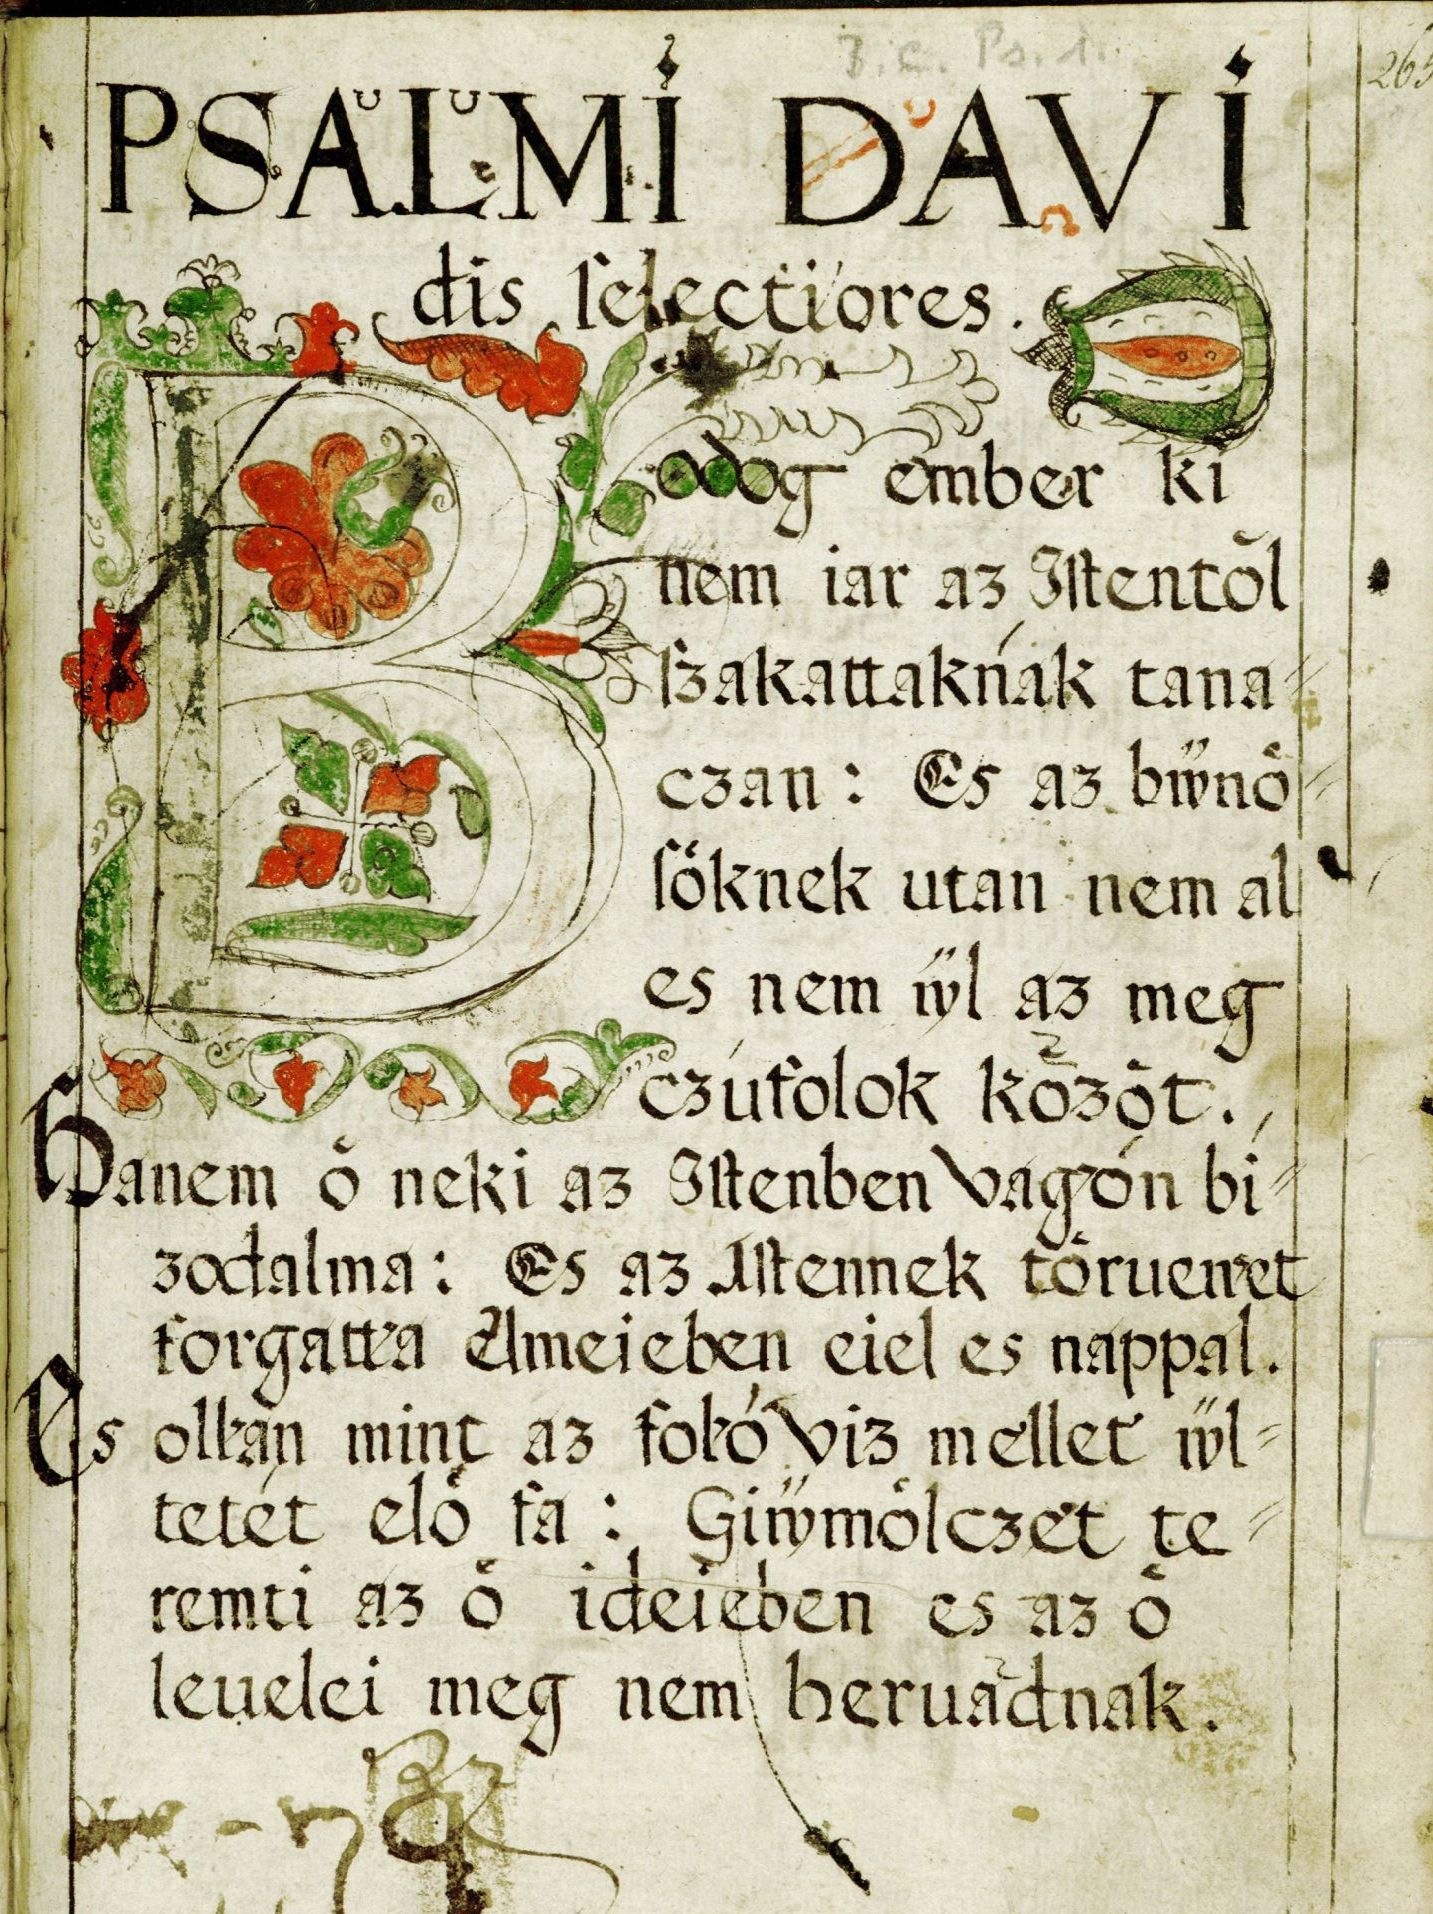 B. C. Ps. 1.
265
PSALMI DAVI
dis ſelectiores.
Bodog ember ki
nem iar az Iſtentől
ſzakattaknák tana⸗
czan: Es az bẅnö⸗
ſöknek utan nem al
es nem ÿl az meg
czúfolok közöt.
Hanem ö neki az Iſtenben vagön bi⸗
zodalma: Es az Iſtennek töruenet
forgattia Elmeieben eiel es nappal.
Es ollian mint az folió viz mellet ÿl⸗
tetet elö fa: Giẅmölczet te⸗
remti az ö ideieben es az ö
leuelei meg nem heruadnak.